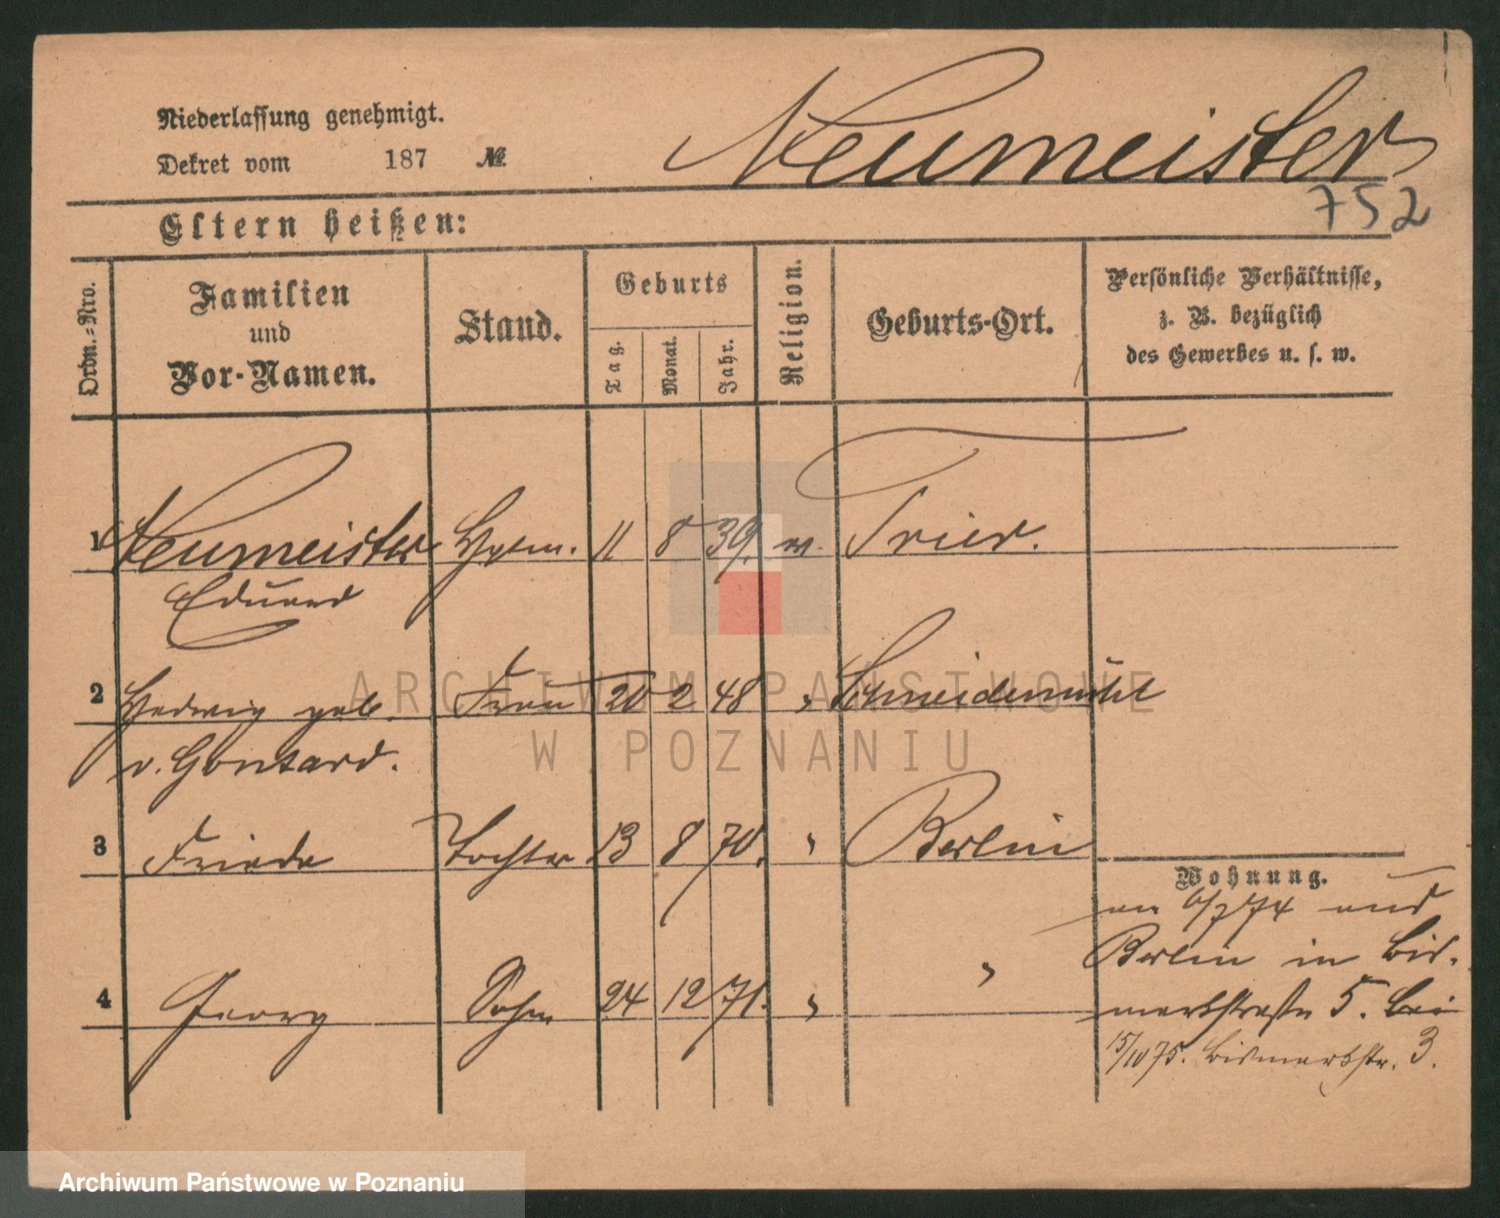 Neumeister
Niederlassung genehmigt.
Dekret vom 187 №
752
Eltern heißen:
Ordn.-Nro.
Familien
und
Vor-Namen.
Stand.
Geburts
Tag.
Monat.
Jahr.
Religion.
Geburts-Ort.
Persönliche Verhältnisse,
z. B. bezüglich
des Gewerbes u. s. w.
1 Neumeister Hptm. 11 8 39. ev. Trier.
Eduard
2 Hedwig geb. Frau 20 2 48 " Schneidemühl
v. Gontard.
3 Friede Tochter 13 8 70. " Berlin
Wohnung.
am 6/7 74 aus
Berlin in Bis-
4 Georg Sohn 24 12 71. " "
markstraße 5. bei
15/10 75. Bismarkstr. 3.
ARCHIWUM PAŃSTWOWE
W POZNANIU
Archiwum Państwowe w Poznaniu